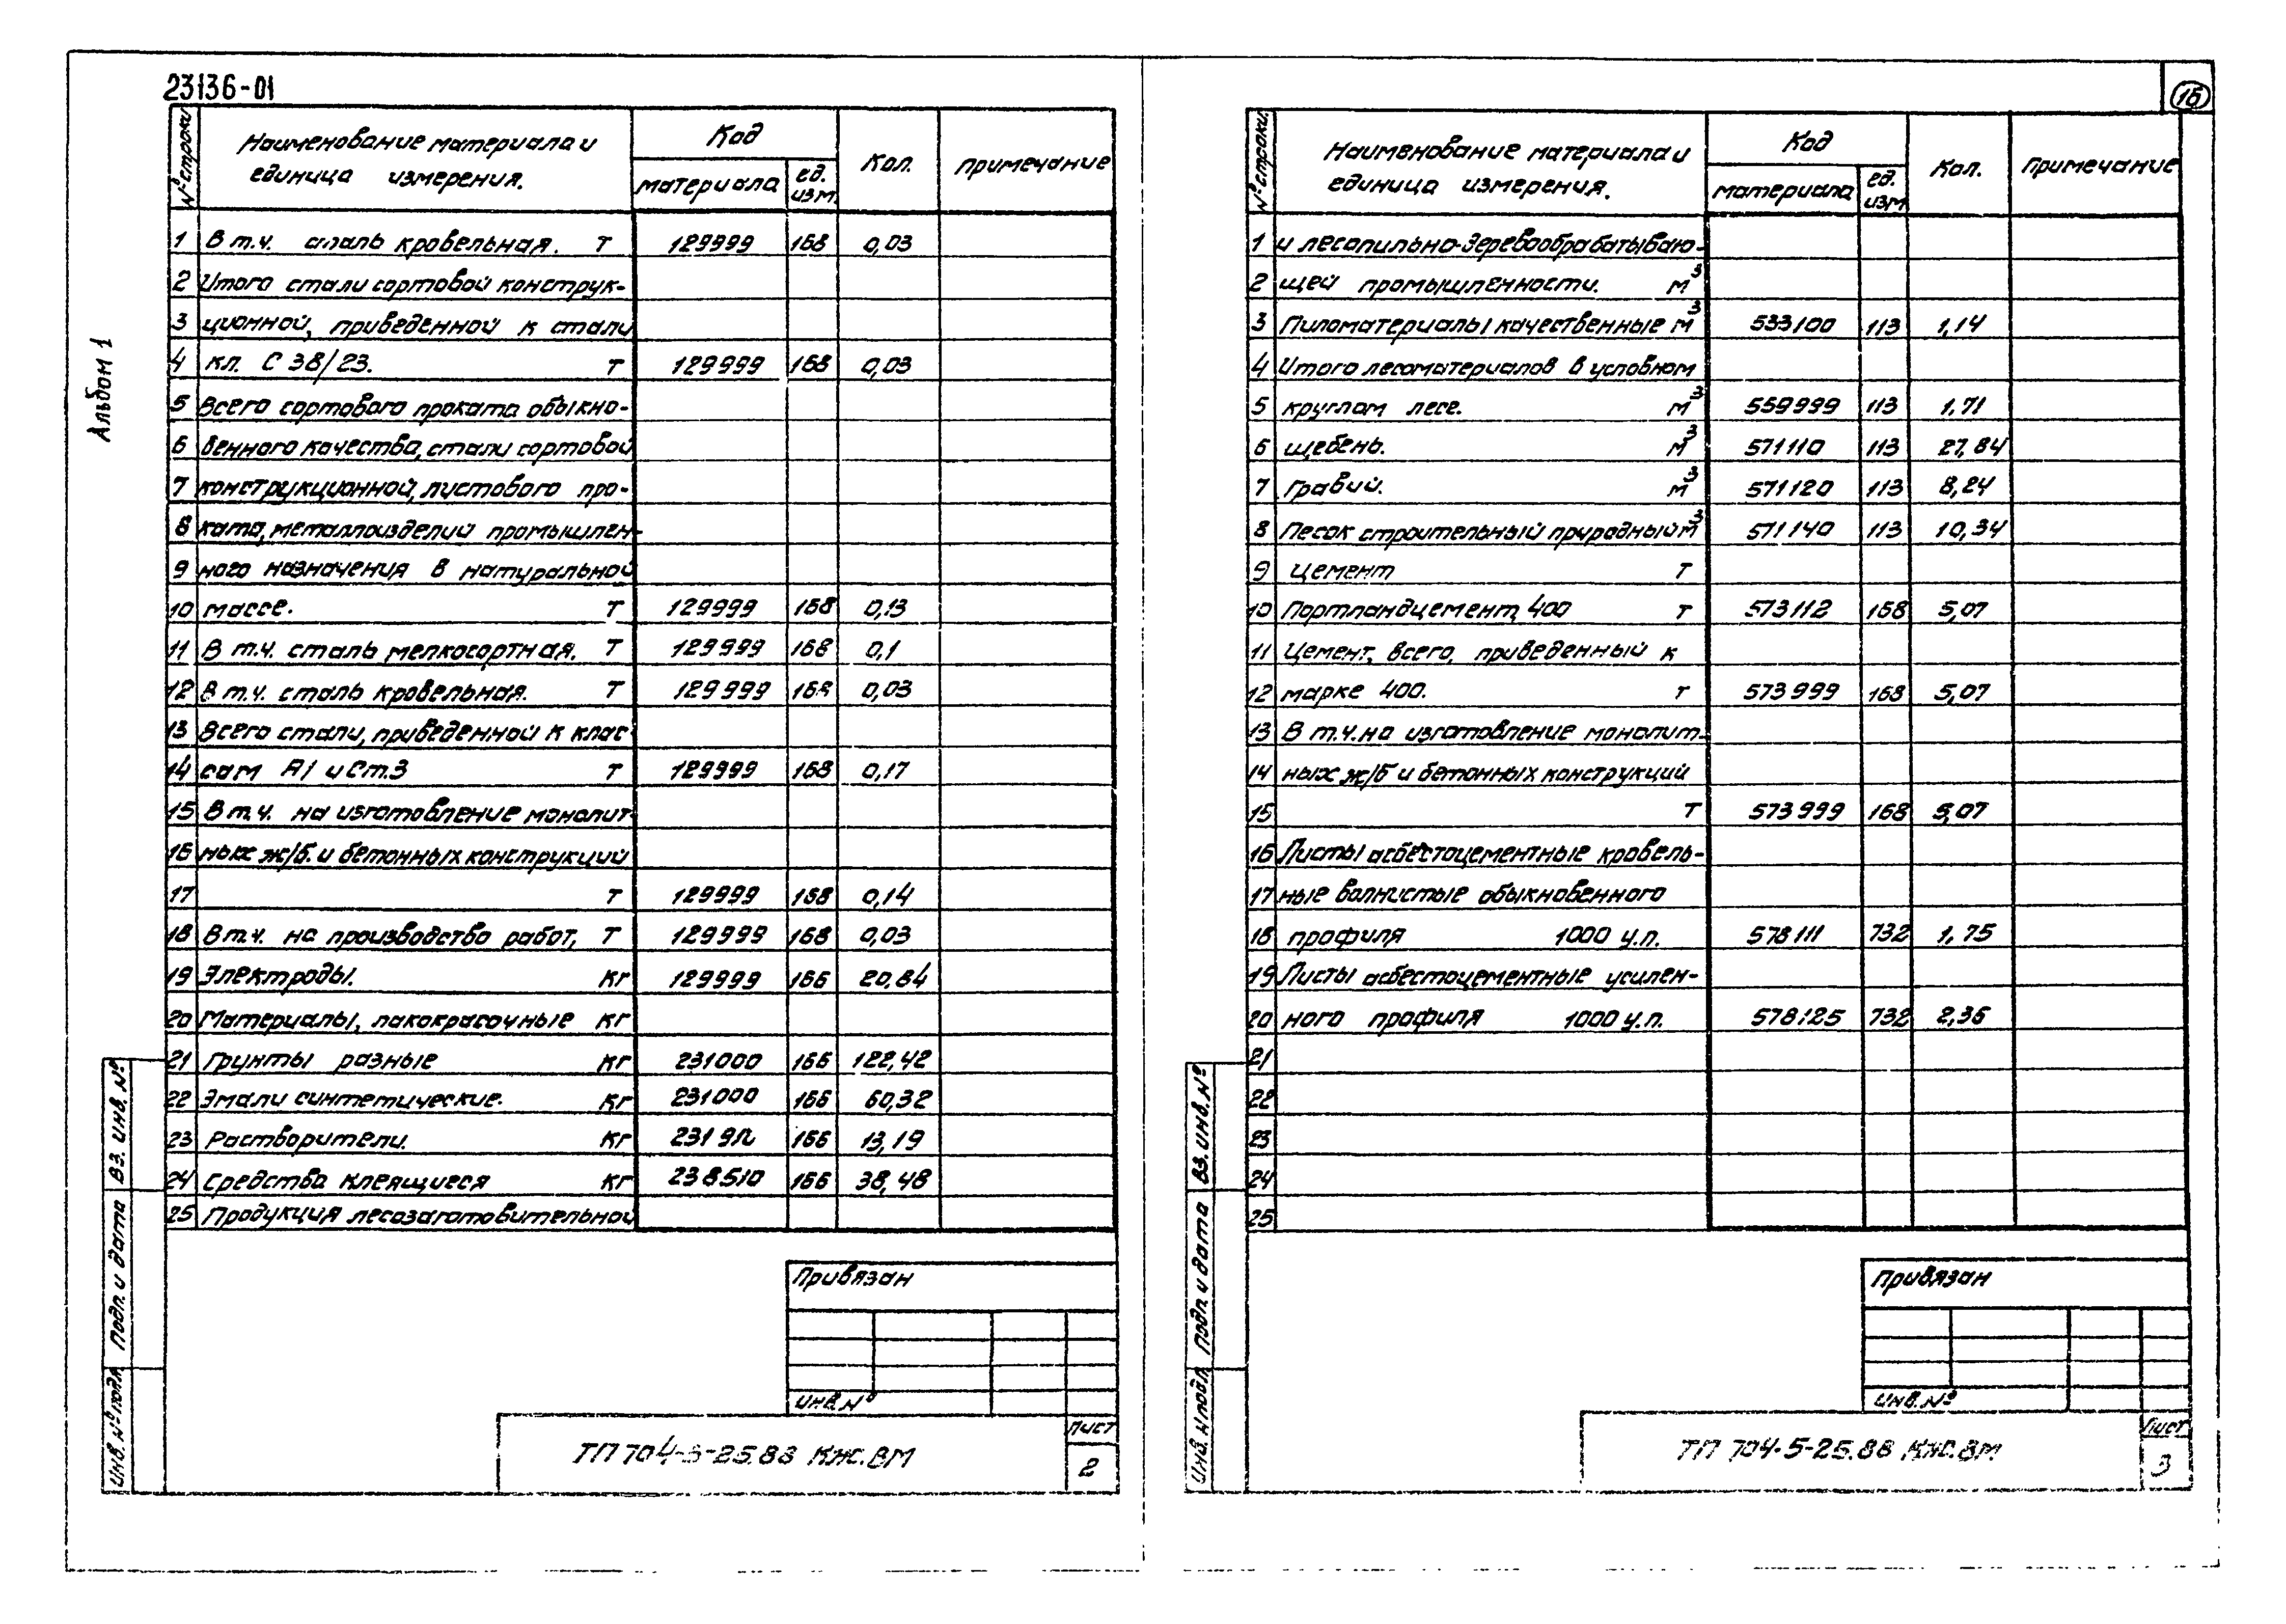 23136-01
Альбом 1
№ строки | Наименование материала и единица измерения. | Код материала | Код ед. изм. | Кол. | примечание
1 В т.ч. сталь кровельная. Т 129999 168 0,03
2 Итого стали сортовой конструк-
3 ционной, приведенной к стали
4 кл. С 38/23. Т 129999 168 0,03
5 Всего сортового проката обыкно-
6 венного качества, стали сортовой
7 конструкционной, листового про-
8 ката, металлоизделий промышлен-
9 ного назначения в натуральной
10 массе. Т 129999 168 0,13
11 В т.ч. сталь мелкосортная. Т 129999 168 0,1
12 В т.ч. сталь кровельная. Т 129999 168 0,03
13 Всего стали, приведенной к клас-
14 сам А1 и Ст.3 Т 129999 168 0,17
15 В т.ч. на изготовление монолит-
16 ных ж/б. и бетонных конструкций
17 Т 129999 168 0,14
18 В т.ч. на производство работ, Т 129999 168 0,03
19 Электроды. кг 129999 166 20,84
20 Материалы, лакокрасочные кг
21 Грунты разные кг 231000 166 122,42
22 Эмали синтетические. кг 231000 166 60,32
23 Растворители. кг 166 13,19
24 Средства клеящиеся кг 238510 166 38,48
25 Продукция лесозаготовительной
Привязан
Инв.№
ТП 704-5-25.88 КЖ.ВМ
Лист
2
Инв. № подл. Подп. и дата Вз. инв. №
16
№ строки | Наименование материала и единица измерения. | Код материала | Код ед. изм | Кол. | Примечание
1 и лесопильно-деревообрабатываю-
2 щей промышленности. м³
3 Пиломатериалы качественные м³ 533100 113 1,14
4 Итого лесоматериалов в условном
5 круглом лесе. м³ 559999 113 1,71
6 щебень. м³ 571110 113 27,84
7 Гравий. м³ 571120 113 8,24
8 Песок строительный природный м³ 571140 113 10,34
9 Цемент Т
10 Портландцемент, 400 т 573112 168 5,07
11 Цемент, всего, приведенный к
12 марке 400. т 573999 168 5,07
13 В т.ч. на изготовление монолит-
14 ных ж/б и бетонных конструкций
15 Т 573999 168 5,07
16 Листы асбестоцементные кровель-
17 ные волнистые обыкновенного
18 профиля 1000 у.п. 578111 732 1,75
19 Листы асбестоцементные усилен-
20 ного профиля 1000 у.п. 578125 732 2,36
21
22
23
24
25
Привязан
Инв.№
ТП 704-5-25.88 КЖ.ВМ
Лист
3
Инв. № подл. Подп. и дата Вз. инв. №